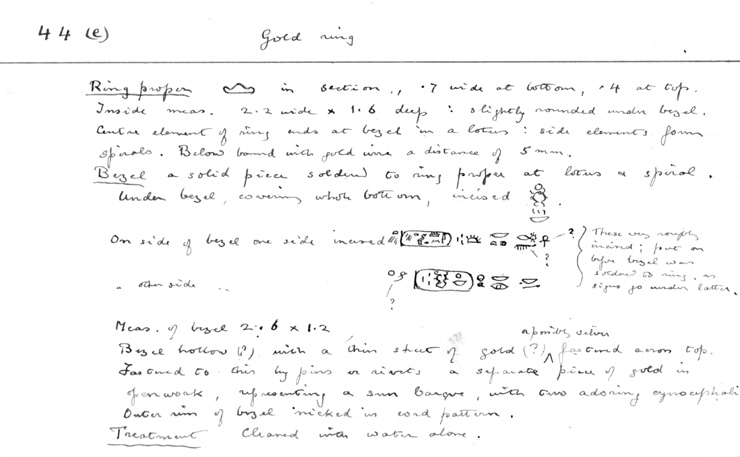 44 (e) Gold ring
Ring proper in section, .7 wide at bottom, .4 at top.
Inside meas. 2.2 wide x 1.6 deep : slightly rounded under bezel.
Centre element of ring ends at bezel in a lotus : side elements form
spirals. Below bound with gold wire a distance of 5 mm.
Bezel a solid piece soldered to ring proper at lotus & spiral.
Under bezel, covering whole bottom, incised
On side of bezel one side incised ? ?
These very roughly
incised ; put on
before bezel was
soldered to ring, as
signs go under latter.
" other side " ?
Meas. of bezel 2.6 x 1.2
Bezel hollow (?) with a thin sheet of gold (?) ^ or possibly silver fastened across top.
Fastened to this by pins or rivets a separate piece of gold in
openwork, representing a sun barque, with two adoring cynocephali
Outer rim of bezel nicked in cord pattern.
Treatment Cleaned with water alone.